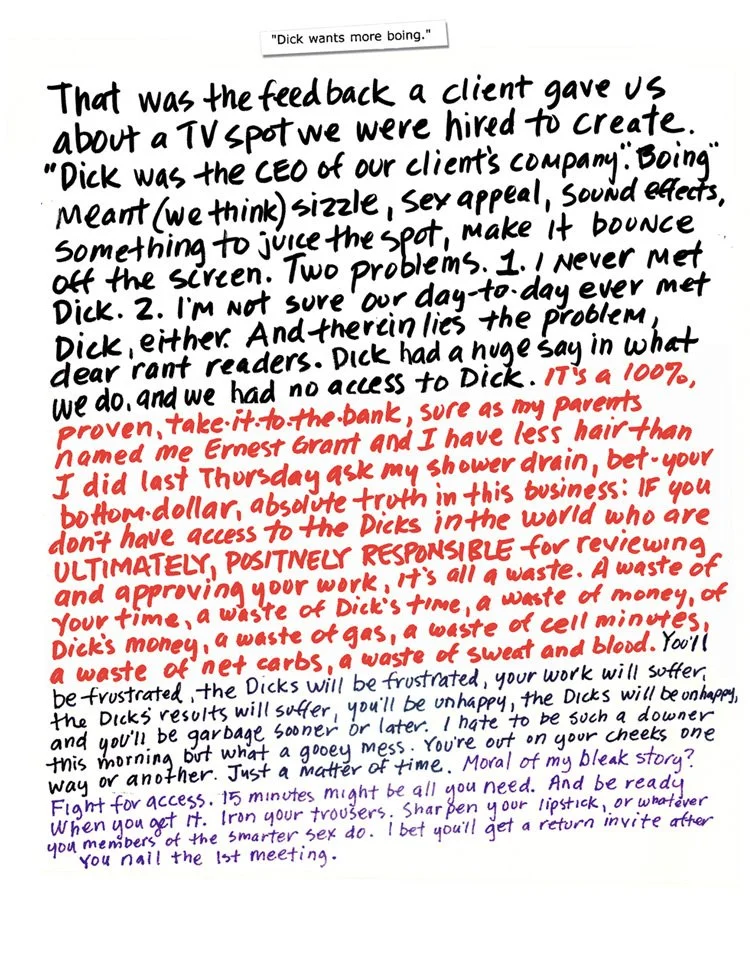 "Dick wants more boing."
That was the feedback a client gave us
about a TV spot we were hired to create.
"Dick was the CEO of our client's company." "Boing"
meant (we think) sizzle, sex appeal, sound effects,
something to juice the spot, make it bounce
off the screen. Two problems. 1. I never met
Dick. 2. I'm not sure our day-to-day ever met
Dick, either. And therein lies the problem,
dear rant readers. Dick had a huge say in what
we do, and we had no access to Dick. IT's a 100%,
proven, take-it-to-the-bank, sure as my parents
named me Ernest Grant and I have less hair than
I did last Thursday ask my shower drain, bet-your
bottom-dollar, absolute truth in this business: IF you
don't have access to the Dicks in the world who are
ULTIMATELY, POSITIVELY RESPONSIBLE for reviewing
and approving your work, it's all a waste. A waste of
your time, a waste of Dick's time, a waste of money, of
Dick's money, a waste of gas, a waste of cell minutes,
a waste of net carbs, a waste of sweat and blood. You'll
be frustrated, the Dicks will be frustrated, your work will suffer,
the Dicks' results will suffer, you'll be unhappy, the Dicks will be unhappy,
and you'll be garbage sooner or later. I hate to be such a downer
this morning but what a gooey mess. You're out on your cheeks one
way or another. Just a matter of time. Moral of my bleak story?
Fight for access. 15 minutes might be all you need. And be ready
when you get it. Iron your trousers. Sharpen your lipstick, or whatever
you members of the smarter sex do. I bet you'll get a return invite after
you nail the 1st meeting.